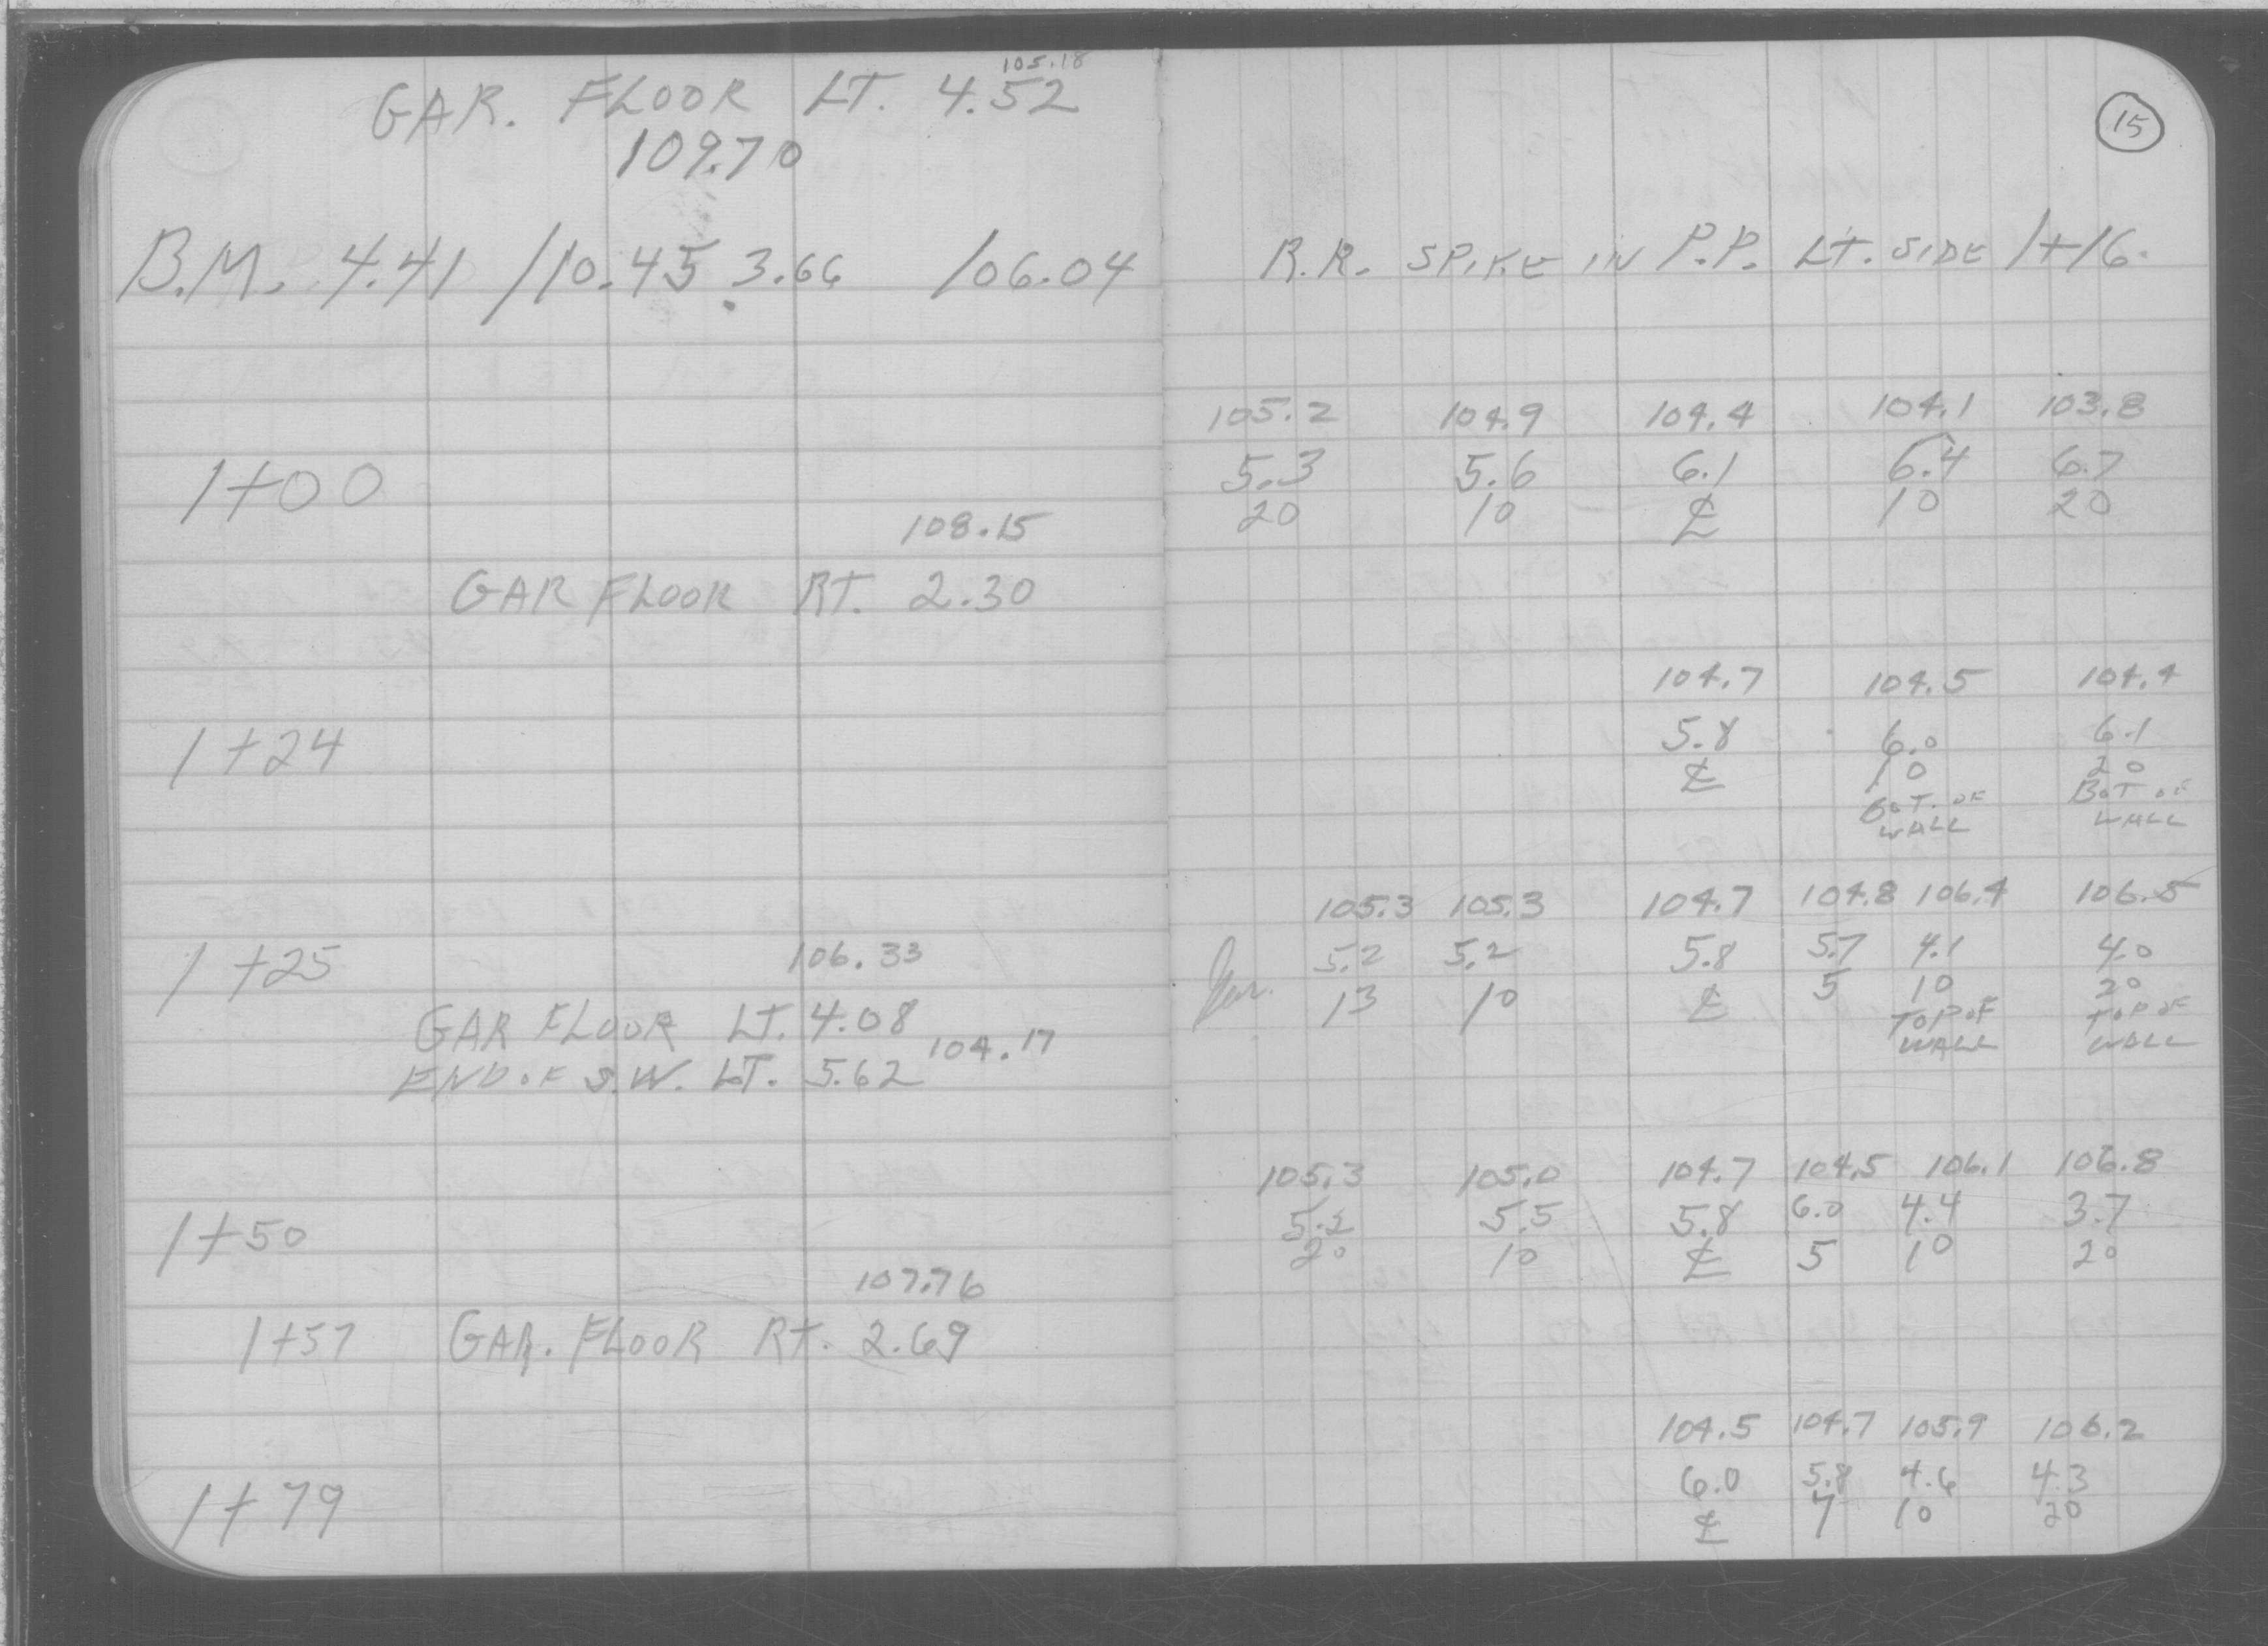 105.18
GAR. FLOOR LT. 4.52
109.70
B.M. 4.41 110.45 3.66 106.04
1+00
108.15
GAR FLOOR RT. 2.30
1+24
1+25 106.33
GAR FLOOR LT. 4.08
END OF S.W. LT. 5.62 104.17
1+50
107.76
1+57 GAR. FLOOR RT. 2.69
1+79
15
R.R. SPIKE IN P.P. LT. SIDE 1+16.
105.2 104.9 104.4 104.1 103.8
5.3 5.6 6.1 6.4 6.7
20 10 ℄ 10 20
104.7 104.5 104.4
5.8 6.0 6.1
℄ 10 20
BOT. OF BOT OF
WALL WALL
105.3 105.3 104.7 104.8 106.4 106.5
5.2 5.2 5.8 5.7 4.1 4.0
13 10 ℄ 5 10 20
TOP OF TOP OF
WALL WALL
105.3 105.0 104.7 104.5 106.1 106.8
5.2 5.5 5.8 6.0 4.4 3.7
20 10 ℄ 5 10 20
104.5 104.7 105.9 106.2
6.0 5.8 4.6 4.3
℄ 7 10 20